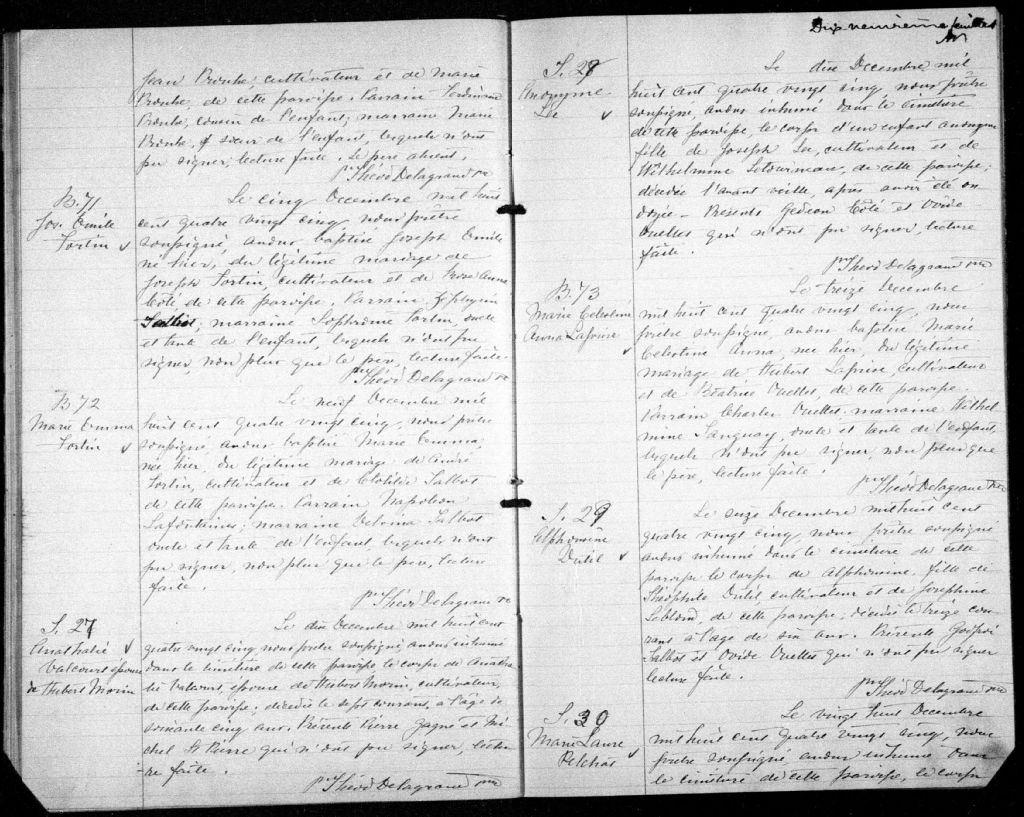 Jean Proulx, cultivateur et de Marie
Proulx, de cette paroisse. Parrain Ferdinand
Proulx, cousin de l'enfant; marraine Marie
Proulx, sœur de l'enfant, lesquels n'ont
pu signer, lecture faite. Le père absent.
Théod Delagrave ptre
B. 71
Jos. Emile
Fortin
Le cinq Decembre mil huit
cent quatre vingt cinq nous prêtre
soussigné, avons baptisé Joseph Emile
né hier, du légitime mariage de
Joseph Fortin, cultivateur et de Rose Anna
Côté de cette paroisse. Parrain
marraine Sophronie Fortin, oncle
et tante de l'enfant, lesquels n'ont pu
signer, non plus que le père, lecture faite.
Théod Delagrave ptre
B. 72
Marie Emma
Fortin
Le neuf Decembre mil
huit cent quatre vingt cinq, nous prêtre
soussigné, avons baptisé Marie Emma,
née hier, du légitime mariage de André
Fortin, cultivateur et de Clotilde Talbot
de cette paroisse. Parrain Napoleon
Lafontaine; marraine Delvina Talbot
oncle et tante de l'enfant, lesquels n'ont
pu signer, non plus que le père, lecture
faite.
Théod Delagrave ptre
S. 27
Anathalie
Valcourt épouse
de Hubert Morin
Le dix Decembre mil huit cent
quatre vingt cinq nous prêtre soussigné, avons inhumé
dans le cimetière de cette paroisse le corps de Anatha-
lie Valcourt, épouse de Hubert Morin, cultivateur,
de cette paroisse; décédée le sept courant, à l'âge de
soixante cinq ans. Présents Pierre Gagné et Mi-
chel St Pierre qui n'ont pu signer, lectu-
re faite.
Théod Delagrave ptre
Dix neuvième feuillet
S. 28
Anonyme
Le dix Decembre mil
huit cent quatre vingt cinq, nous prêtre
soussigné, avons inhumé dans le cimetière
de cette paroisse, le corps d'un enfant anonyme
fille de Joseph cultivateur et de
Wilhelmine Letourneau, de cette paroisse;
décédée l'avant veille, après avoir été on-
doyée. Présents Gedeon Côté et Ovide
Ouellet qui n'ont pu signer, lecture
faite.
Théod Delagrave ptre
B. 73
Marie Celestine
Anna Laprise
Le treize Decembre
mil huit cent quatre vingt cinq, nous
prêtre soussigné, avons baptisé Marie
Celestine Anna, née hier, du légitime
mariage de Hubert Laprise, cultivateur
et de Béatrice Ouellet, de cette paroisse.
Parrain Charles Ouellet, marraine Wilhel
mine Tanguay, oncle et tante de l'enfant,
lesquels n'ont pu signer, non plus que
le père, lecture faite.
Théod Delagrave ptre
S. 29
Alphonsine
Dutil
Le seize Decembre mil huit cent
quatre vingt cinq, nous, prêtre soussigné
avons inhumé dans le cimetière de cette
paroisse le corps de Alphonsine, fille de
Théophile Dutil cultivateur et de Josephine
Leblond, de cette paroisse, décédée le treize cou-
rant à l'âge de six ans. Présents Godfroi
Talbot et Ovide Ouellet qui n'ont pu signer
lecture faite.
Théod Delagrave ptre
S. 30
Marie Laure
Pelchat
Le vingt huit Decembre
mil huit cent quatre vingt cinq, nous
prêtre soussigné, avons inhumé dans
le cimetière de cette paroisse, le corps